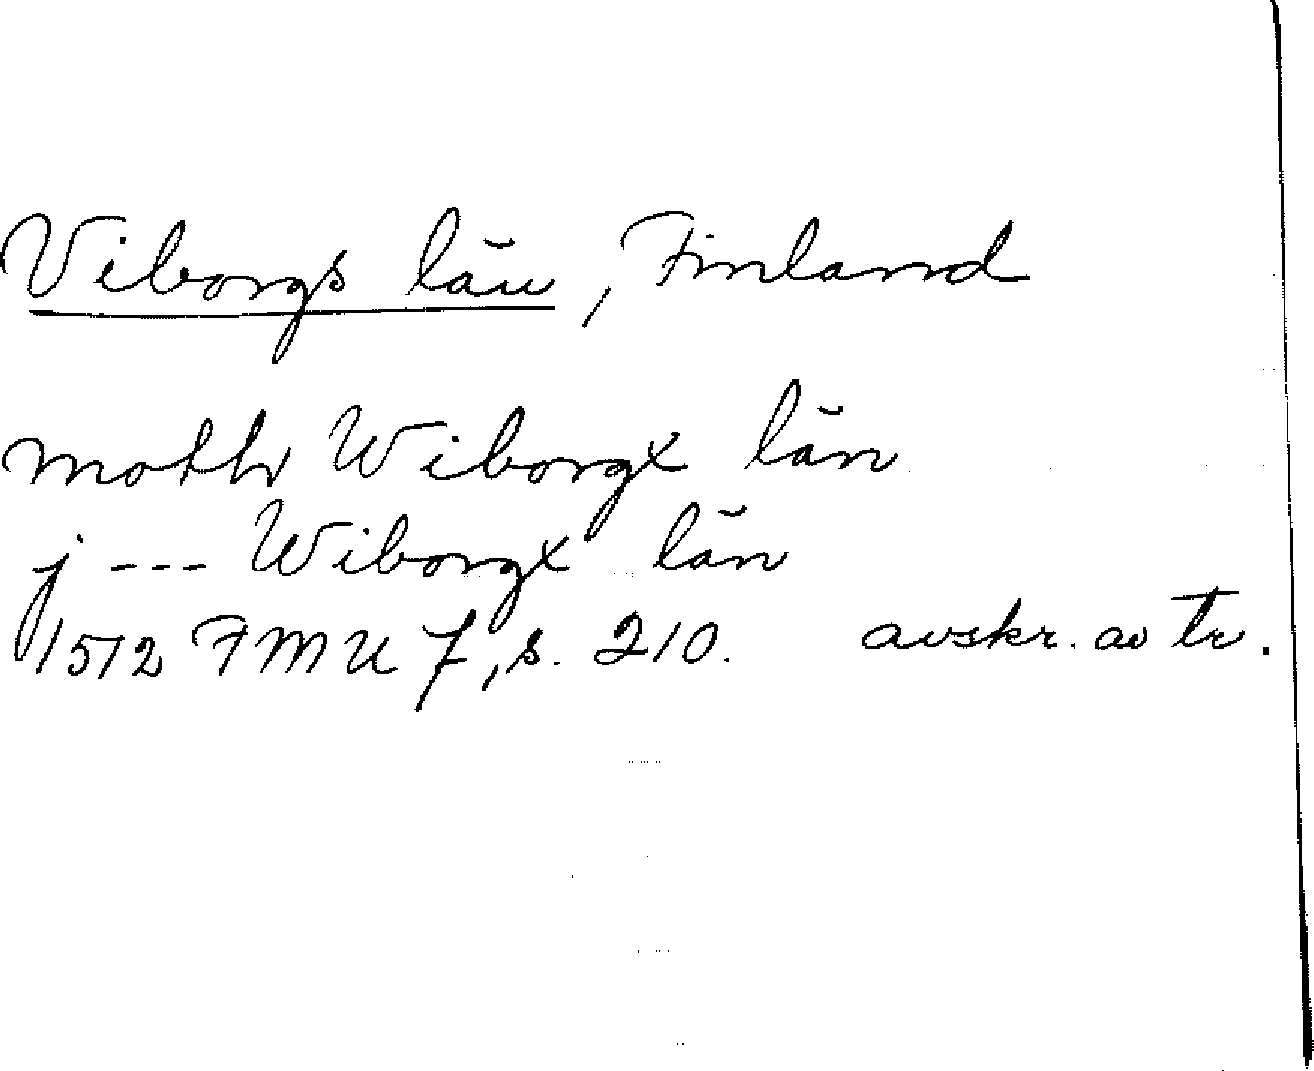 Viborgs län, Finland
moth Wiborgx län
j --- Wiborgx län
1512 FMU 7, s. 210. avskr. av tr.